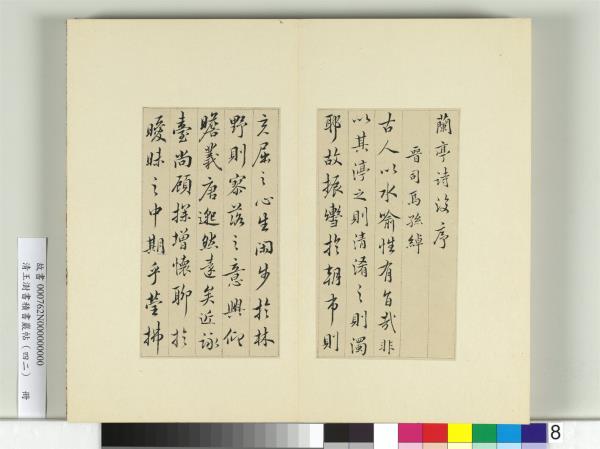 蘭亭詩後序
晉司馬孫綽
古人以水喻性有旨哉非
以其渟之則清淆之則濁
耶故振轡於朝市則
充屈之心生閑步於林
野則寥落之意興仰
瞻羲唐邈然遠矣近詠
臺尚顧探增懷聊於
曖昧之中期乎瑩拂
故書 000762N000000000
清王澍書積書巖帖(四二) 冊
8